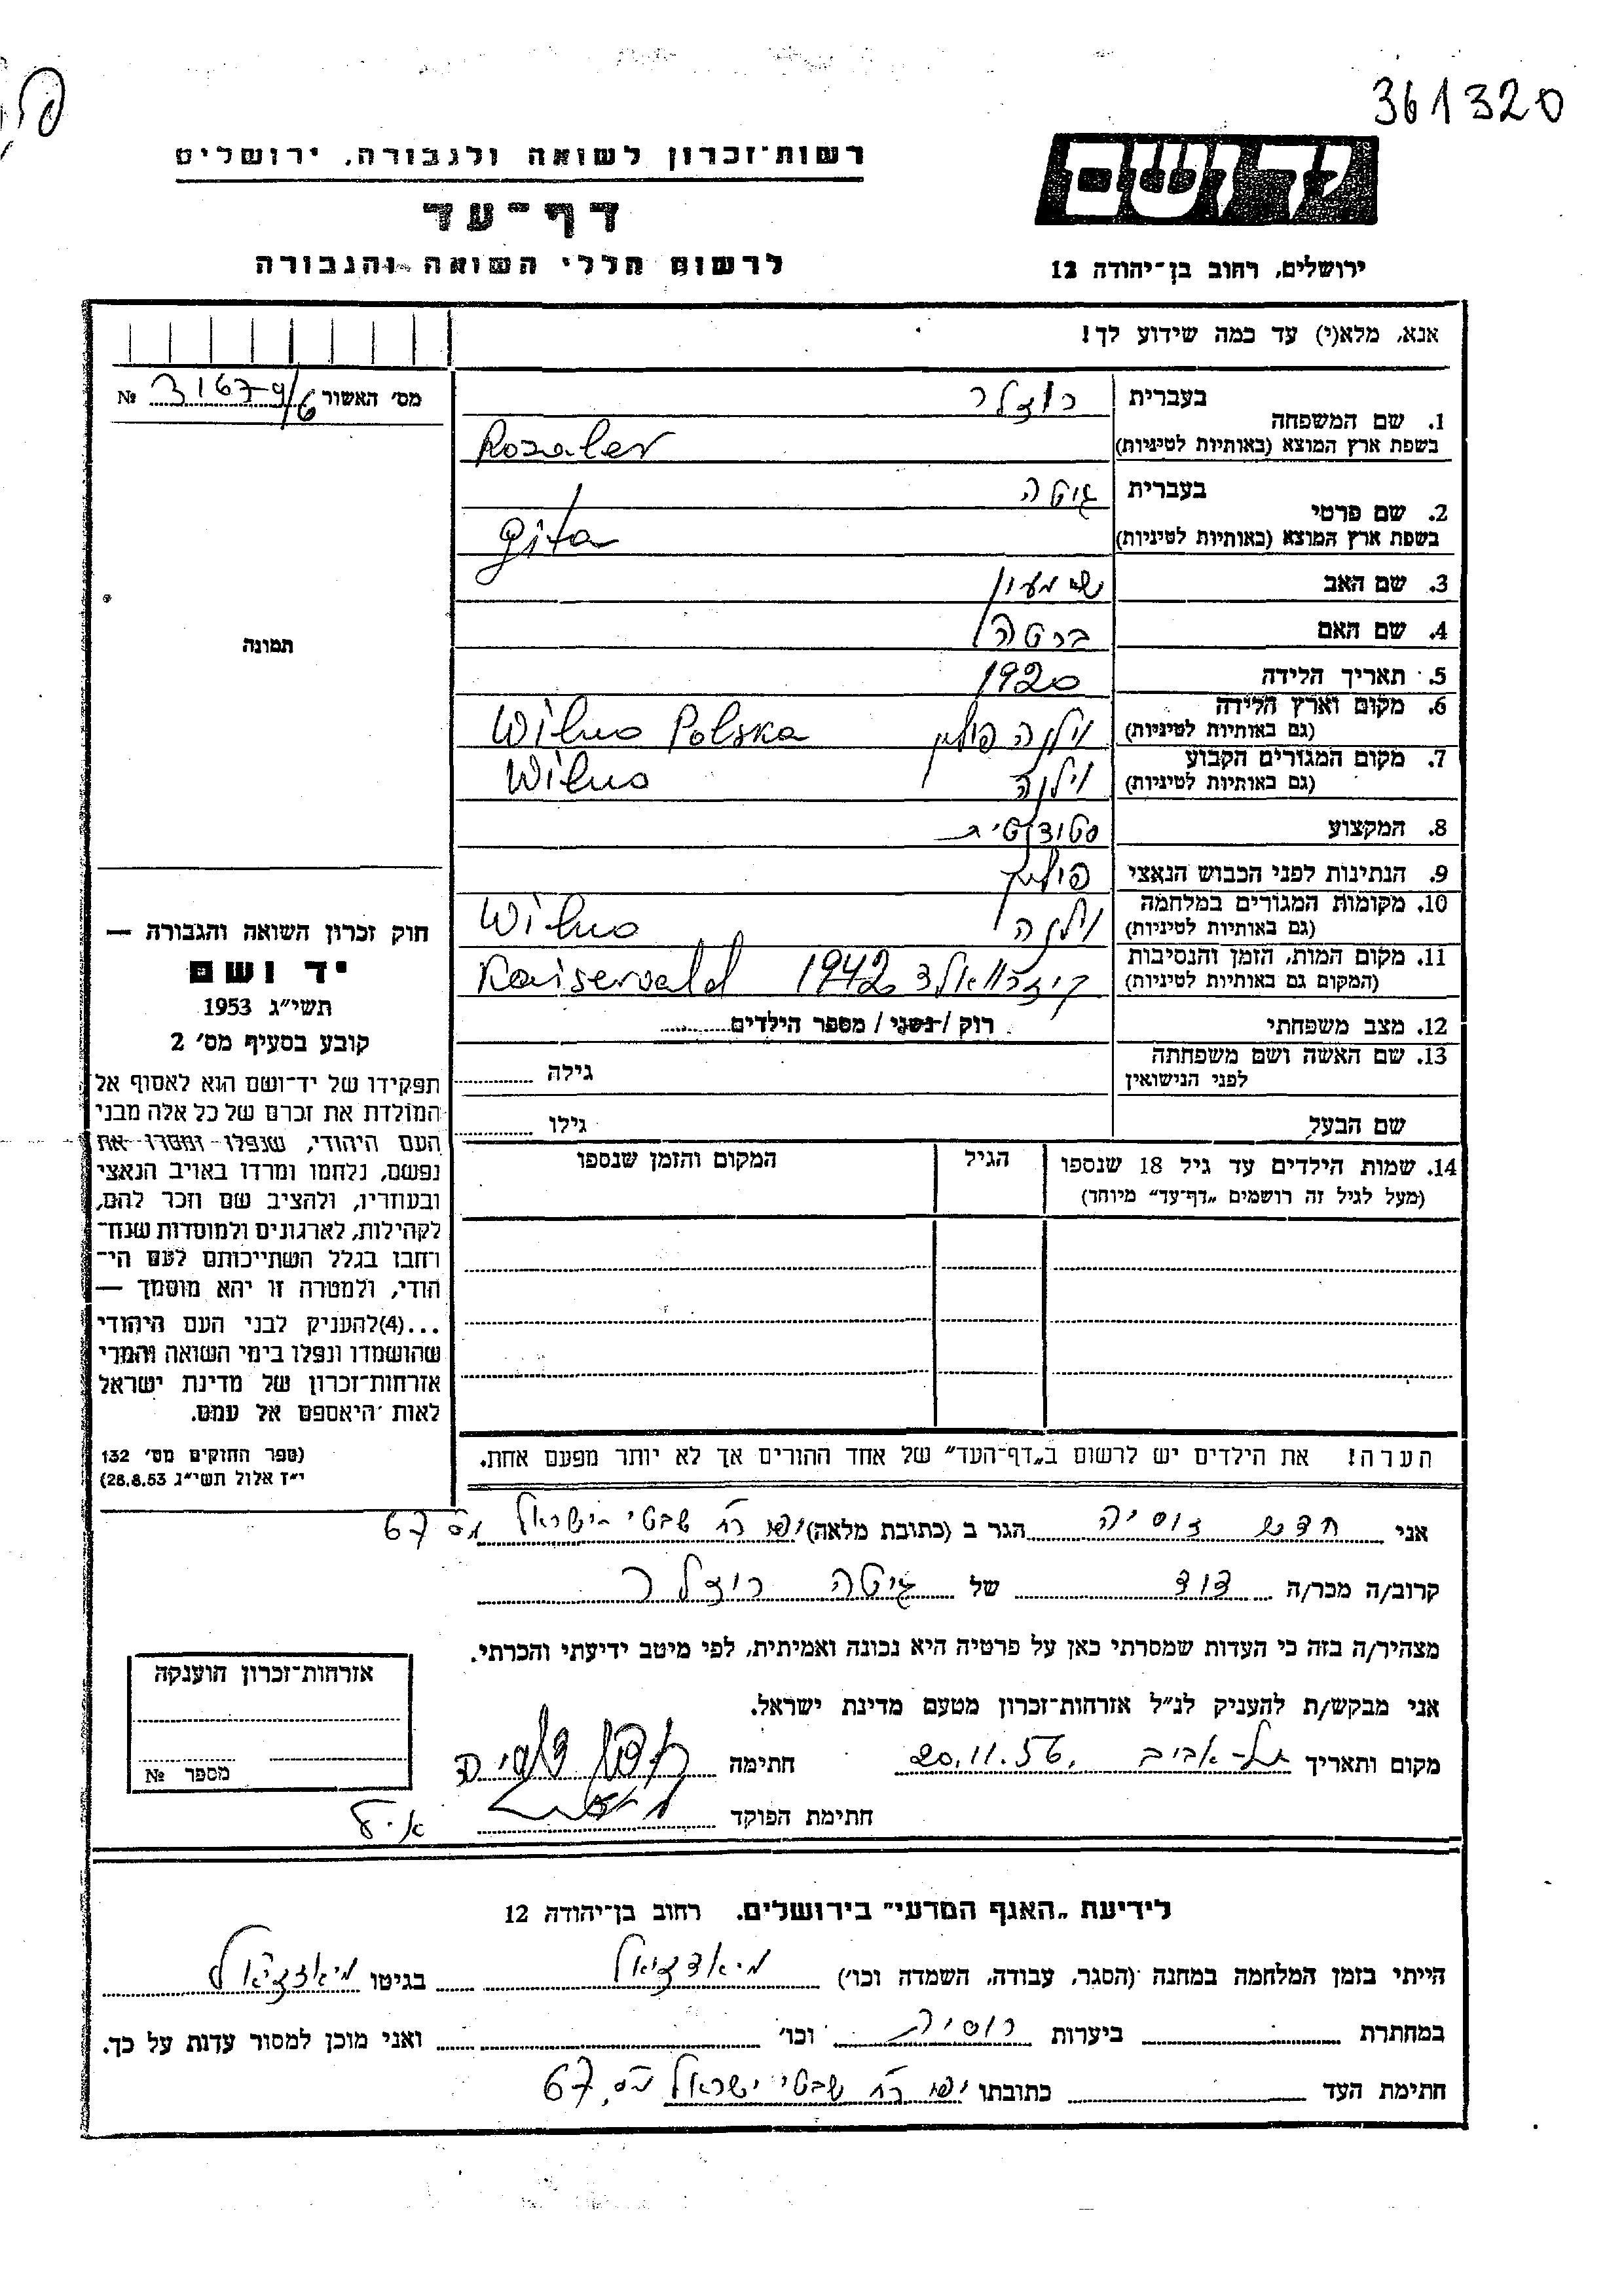 361320
רשות־זכרון לשואה ולגבורה, ירושלים
דף־עד
לרשום חללי השואה והגבורה
יד ושם
ירושלים, רחוב בן־יהודה 12
אנא, מלא(י) עד כמה שידוע לך!
מס׳ האשור 31679/6 №
1. שם המשפחה
בעברית רוזלר
בשפת ארץ המוצא (באותיות לטיניות) Rozaler
2. שם פרטי
בעברית גיטה
בשפת ארץ המוצא (באותיות לטיניות) Gita
3. שם האב שמעון
4. שם האם ברטה
5. תאריך הלידה 1920
6. מקום וארץ הלידה
(גם באותיות לטיניות) וילנה פולין Wilno Polska
7. מקום המגורים הקבוע
(גם באותיות לטיניות) וילנה Wilno
8. המקצוע סטודנטית
9. הנתינות לפני הכבוש הנאצי פולין
10. מקומות המגורים במלחמה
(גם באותיות לטיניות) וילנה Wilno
11. מקום המות, הזמן והנסיבות
(המקום גם באותיות לטיניות) קיזרוואלד 1942 Kaiservald
12. מצב משפחתי רוק / נשוי / מספר הילדים
13. שם האשה ושם משפחתה
לפני הנישואין
גילה
שם הבעל
גילו
14. שמות הילדים עד גיל 18 שנספו
(מעל לגיל זה רושמים „דף־עד” מיוחד)
הגיל
המקום והזמן שנספו
הערה! את הילדים יש לרשום ב„דף־העד” של אחד ההורים אך לא יותר מפעם אחת.
תמונה
חוק זכרון השואה והגבורה —
יד ושם
תשי״ג 1953
קובע בסעיף מס׳ 2
תפקידו של יד־ושם הוא לאסוף אל
המולדת את זכרם של כל אלה מבני
העם היהודי, שנפלו ומסרו את
נפשם, נלחמו ומרדו באויב הנאצי
ובעוזריו, ולהציב שם וזכר להם,
לקהילות, לארגונים ולמוסדות שנח־
רחבו בגלל השתייכותם לעם הי־
הודי, ולמטרה זו יהא מוסמך —
...(4)להעניק לבני העם היהודי
שהושמדו ונפלו בימי השואה והמרי
אזרחות־זכרון של מדינת ישראל
לאות ׳היאספם אל עמם.
(ספר החוקים מס׳ 132
י״ז אלול תשי״ג 28.8.53)
אני חדש זוסיה הגר ב (כתובת מלאה) יפו רח׳ שבטי ישראל מס 67
קרוב/ה מכר/ה דוד של גיטה רוזלר
מצהיר/ה בזה כי העדות שמסרתי כאן על פרטיה היא נכונה ואמיתית, לפי מיטב ידיעתי והכרתי.
אני מבקש/ת להעניק לנ״ל אזרחות־זכרון מטעם מדינת ישראל.
מקום ותאריך תל־אביב, 20.11.56 חתימה
חתימת הפוקד
אזרחות־זכרון הוענקה
מספר №
לידיעת „האגף המדעי” בירושלים. רחוב בן־יהודה 12
הייתי בזמן המלחמה במחנה (הסגר, עבודה, השמדה וכו׳) מיאדזיאל בגיטו מיאדזיאל
במחתרת ביערות רוסיה וכו׳ ואני מוכן למסור עדות על כך.
חתימת העד כתובתו יפו רח׳ שבטי ישראל מס׳ 67